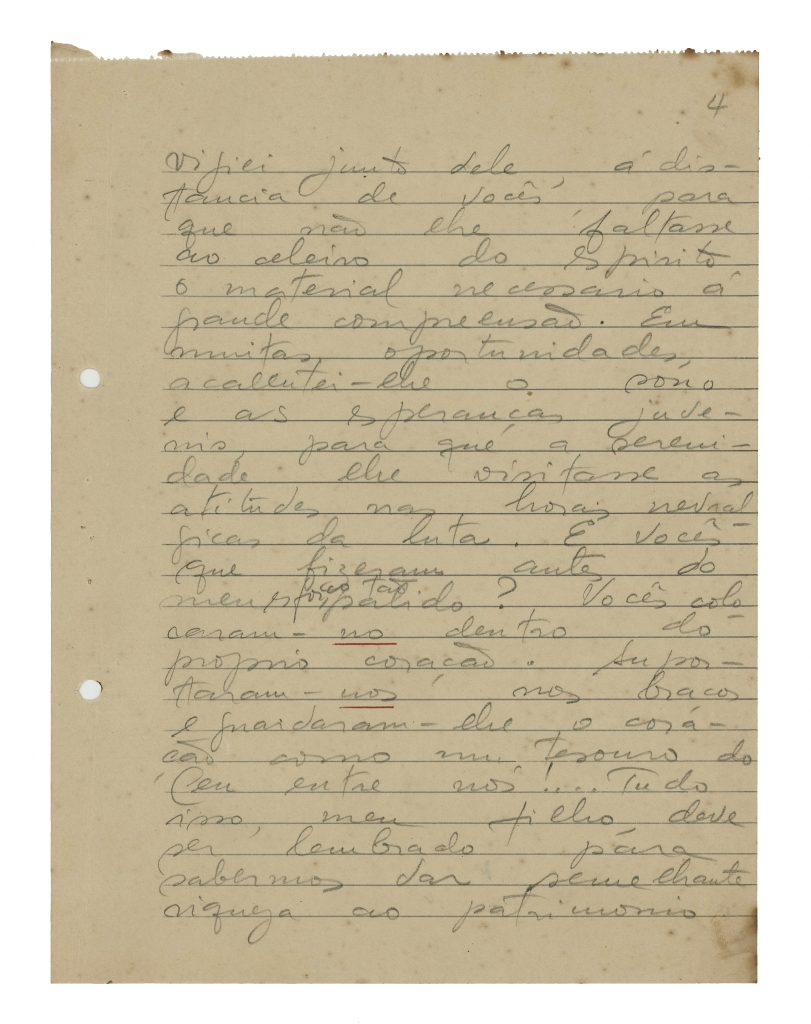 4
vigiei junto dele, á dis-
tancia de vocês, para
que não lhe faltasse
ao celeiro do espirito
o material necessario á
grande compreensão. Em
muitas oportunidades,
acalentei-lhe o sono
e as esperanças juve-
nis, para que a sereni-
dade lhe visitasse as
atitudes nas horas nevral-
gicas da luta. E vocês
que fizeram ante do
meu esforço tão pálido? Vocês colo-
caram-no dentro do
proprio coração. Supor-
taram-nos nos braços
e guardaram-lhe o cora-
ção como um tesouro do
Ceu entre nós!.... Tudo
isso, meu filho, deve
ser lembrado para
sabermos dar semelhante
riqueza ao patrimonio